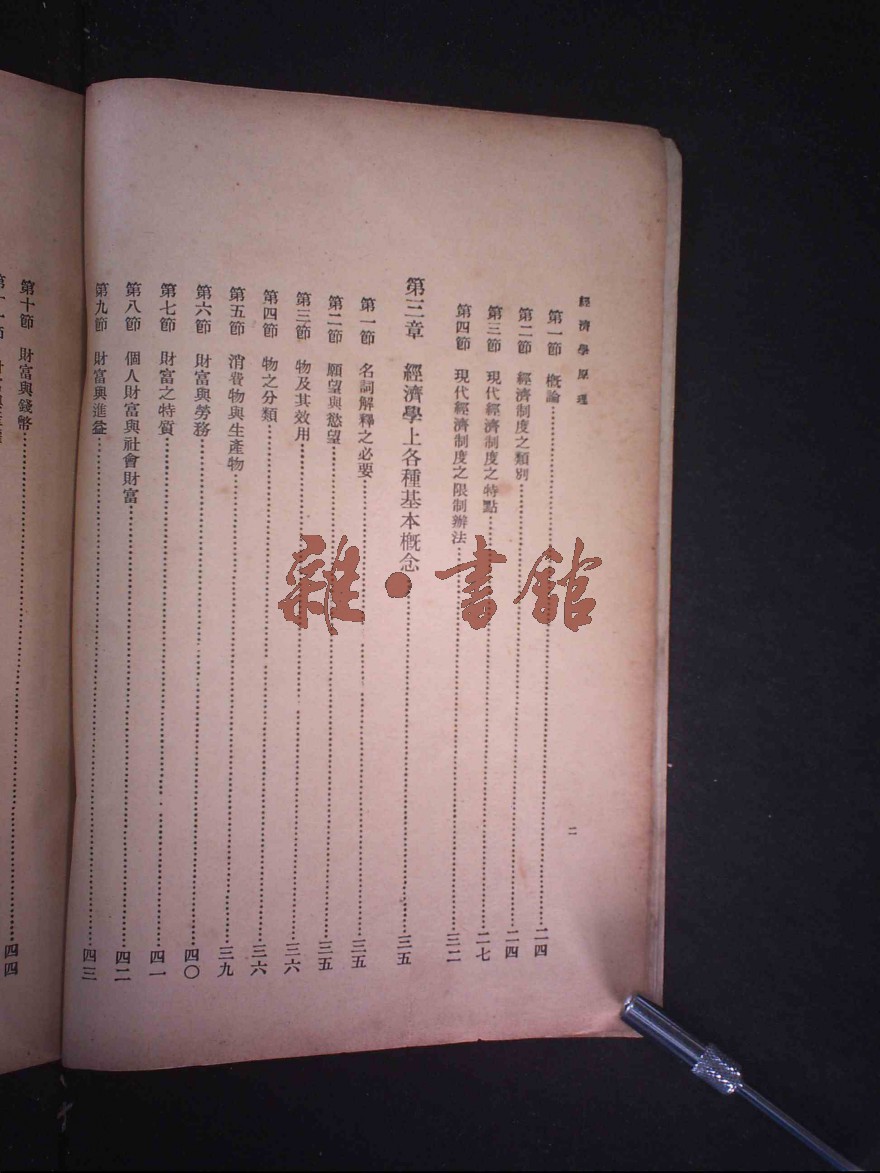 經濟學原理
二
第一節 概論 二四
第二節 經濟制度之類別 二四
第三節 現代經濟制度之特點 二七
第四節 現代經濟制度之限制辦法 三二
第三章 經濟學上各種基本概念 三五
第一節 名詞解釋之必要 三五
第二節 願望與慾望 三五
第三節 物及其效用 三六
第四節 物之分類 三六
第五節 消費物與生產物 三九
第六節 財富與勞務 四〇
第七節 財富之特質 四一
第八節 個人財富與社會財富 四二
第九節 財富與進益 四三
第十節 財富與錢幣 四四
雜·書館